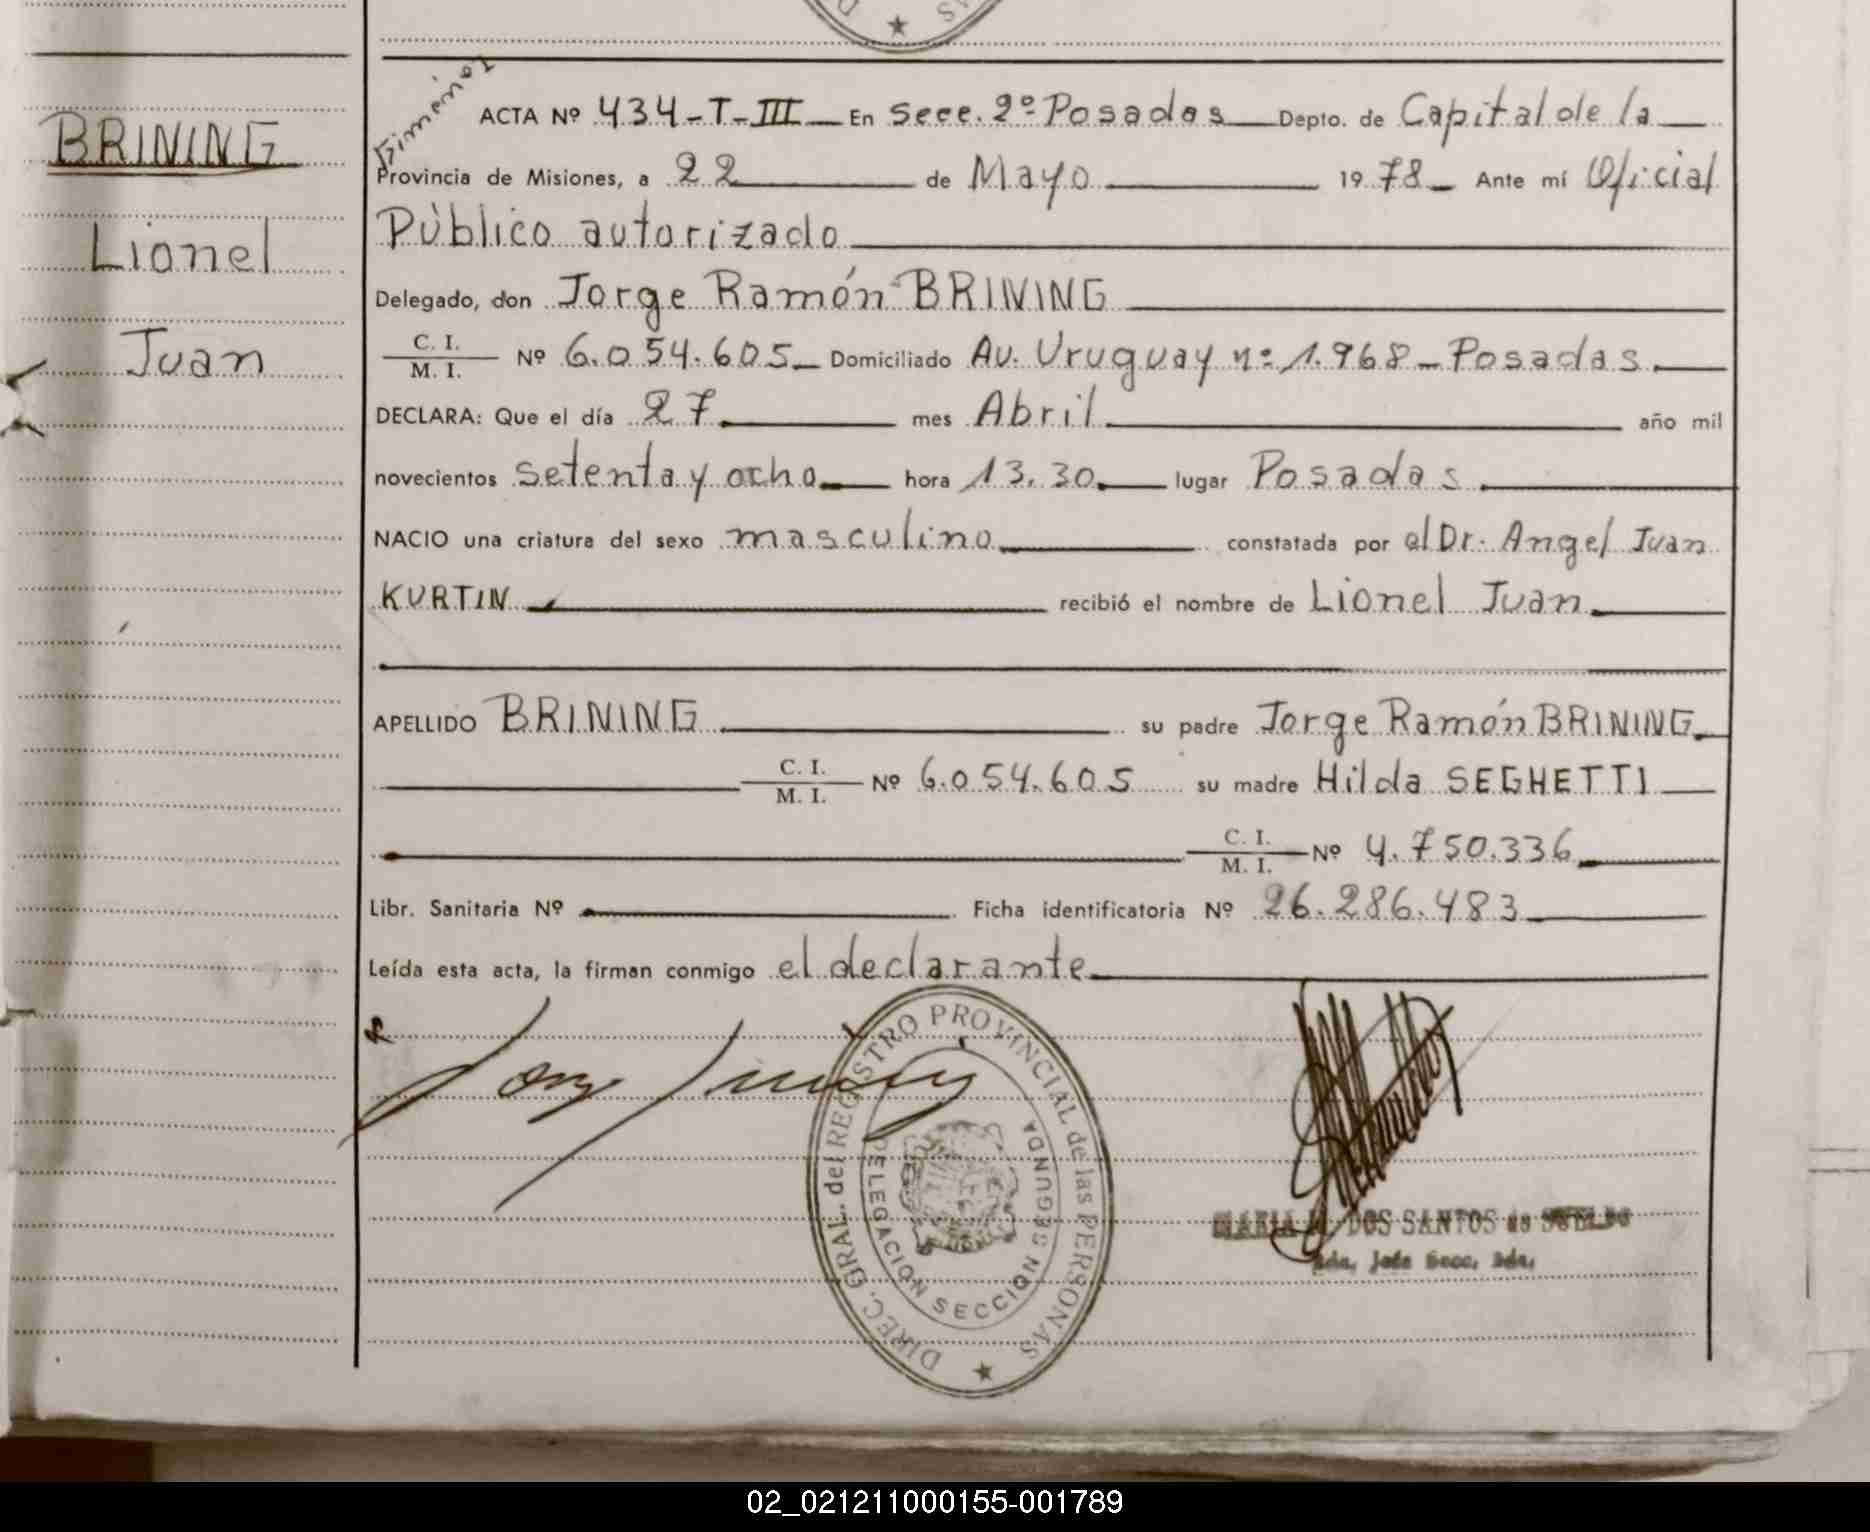 BRINING
Lionel
Juan
Gimenez
ACTA Nº 434-T-III En Secc. 2º Posadas Depto. de Capital de la
Provincia de Misiones, a 22 de Mayo 1978 Ante mí Oficial
Público autorizado
Delegado, don Jorge Ramón BRINING
C. I. / M. I. Nº 6.054.605 Domiciliado Av. Uruguay nº 1.968 - Posadas
DECLARA: Que el día 27 mes Abril año mil
novecientos setenta y ocho hora 13.30 lugar Posadas
NACIO una criatura del sexo masculino constatada por el Dr. Angel Juan
KURTIN recibió el nombre de Lionel Juan
APELLIDO BRINING su padre Jorge Ramón BRINING
C. I. / M. I. Nº 6.054.605 su madre Hilda SEGHETTI
C. I. / M. I. Nº 4.750.336
Libr. Sanitaria Nº Ficha identificatoria Nº 26.286.483
Leída esta acta, la firman conmigo el declarante
DIREC. GRAL. del REGISTRO PROVINCIAL de las PERSONAS
DELEGACION SECCION SEGUNDA
MARIA DOS SANTOS de
Jefe Secc. 2da.
02_021211000155-001789